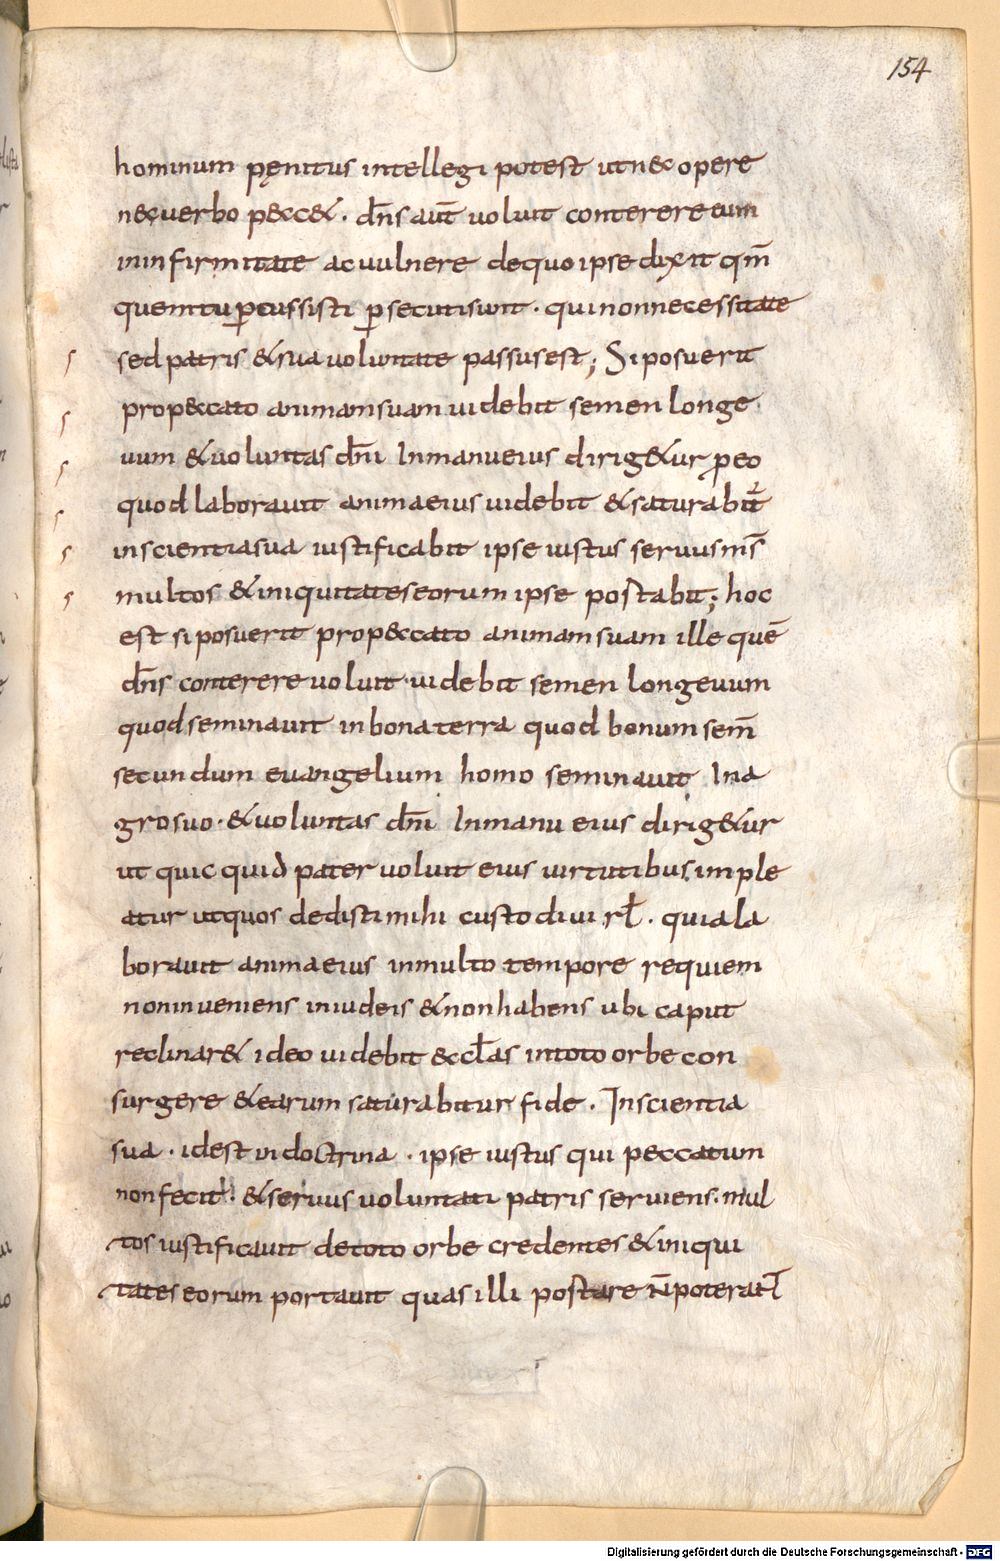 154
hominum pęnitus intellegi potest ut nec opere
nec uerbo peccet. dn̄s aut̄ uoluit conterere eum
in infirmitate ac uulnere de quo ipse dixit qm̄
quem tu ꝑcussisti ꝑsecuti sunt. qui non necessitate
sed patris & sua uoluntate passus est; Si posuerit
pro peccato animam suam uidebit semen longe
uum & uoluntas dn̄i In manu eius dirig&ur ꝓ eo
quod laborauit anima eius uidebit & saturabit᷑
in scientia sua iustificabit ipse iustus seruus ms̄
multos & iniquitates eorum ipse portabit; hoc
est si posuerit pro peccato animam suam ille quē
dn̄s conterere uoluit. uidebit semen longeuum
quod seminauit in bona terra quod bonum sem̄
secundum euangelium homo seminauit In a
gro suo. & uoluntas dn̄i In manu eius dirig&ur
ut quicquid pater uoluit eius uirtutibus imple
atur ut quos dedisti mihi custodiui rł. quia la
borauit anima eius in multo tempore requiem
non inueniens in iudeis & non habens ubi caput
reclinar& ideo uidebit ecctas in toto orbe con
surgere & earum saturabitur fide. In scientia
sua. id est in doctrina. ipse iustus qui peccatum
non fecit. & seruus uoluntati patris seruiens. mul
tos iustificauit de toto orbe credentes & iniqui
tates eorum portauit quas illi portare n̄ poterant
Digitalisierung gefördert durch die Deutsche Forschungsgemeinschaft - DFG